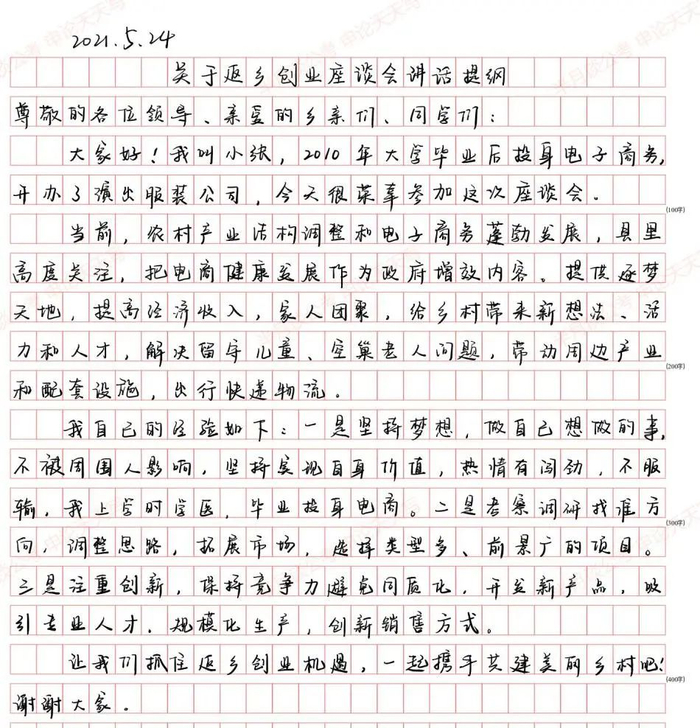 2021.5.24
关于返乡创业座谈会讲话提纲
尊敬的各位领导、亲爱的乡亲们、同学们：
大家好！我叫小张，2010年大学毕业后投身电子商务，
开办了演出服装公司，今天很荣幸参加这次座谈会。
(100字)
当前，农村产业结构调整和电子商务蓬勃发展，县里
高度关注，把电商健康发展作为政府增效内容。提供逐梦
天地，提高经济收入，家人团聚，给乡村带来新想法、活
力和人才，解决留守儿童、空巢老人问题，带动周边产业
(200字)
和配套设施，出行快递物流。
我自己的经验如下：一是坚持梦想，做自己想做的事，
不被周围人影响，坚持实现自身价值，热情有闯劲，不服
输，我上学时学医，毕业投身电商。二是考察调研找准方
(300字)
向，调整思路，拓展市场，选择类型多、前景广的项目。
三是注重创新，保持竞争力避免同质化，开发新产品，吸
引专业人才，规模化生产，创新销售方式。
让我们抓住返乡创业机遇，一起携手共建美丽乡村吧！
(400字)
谢谢大家。